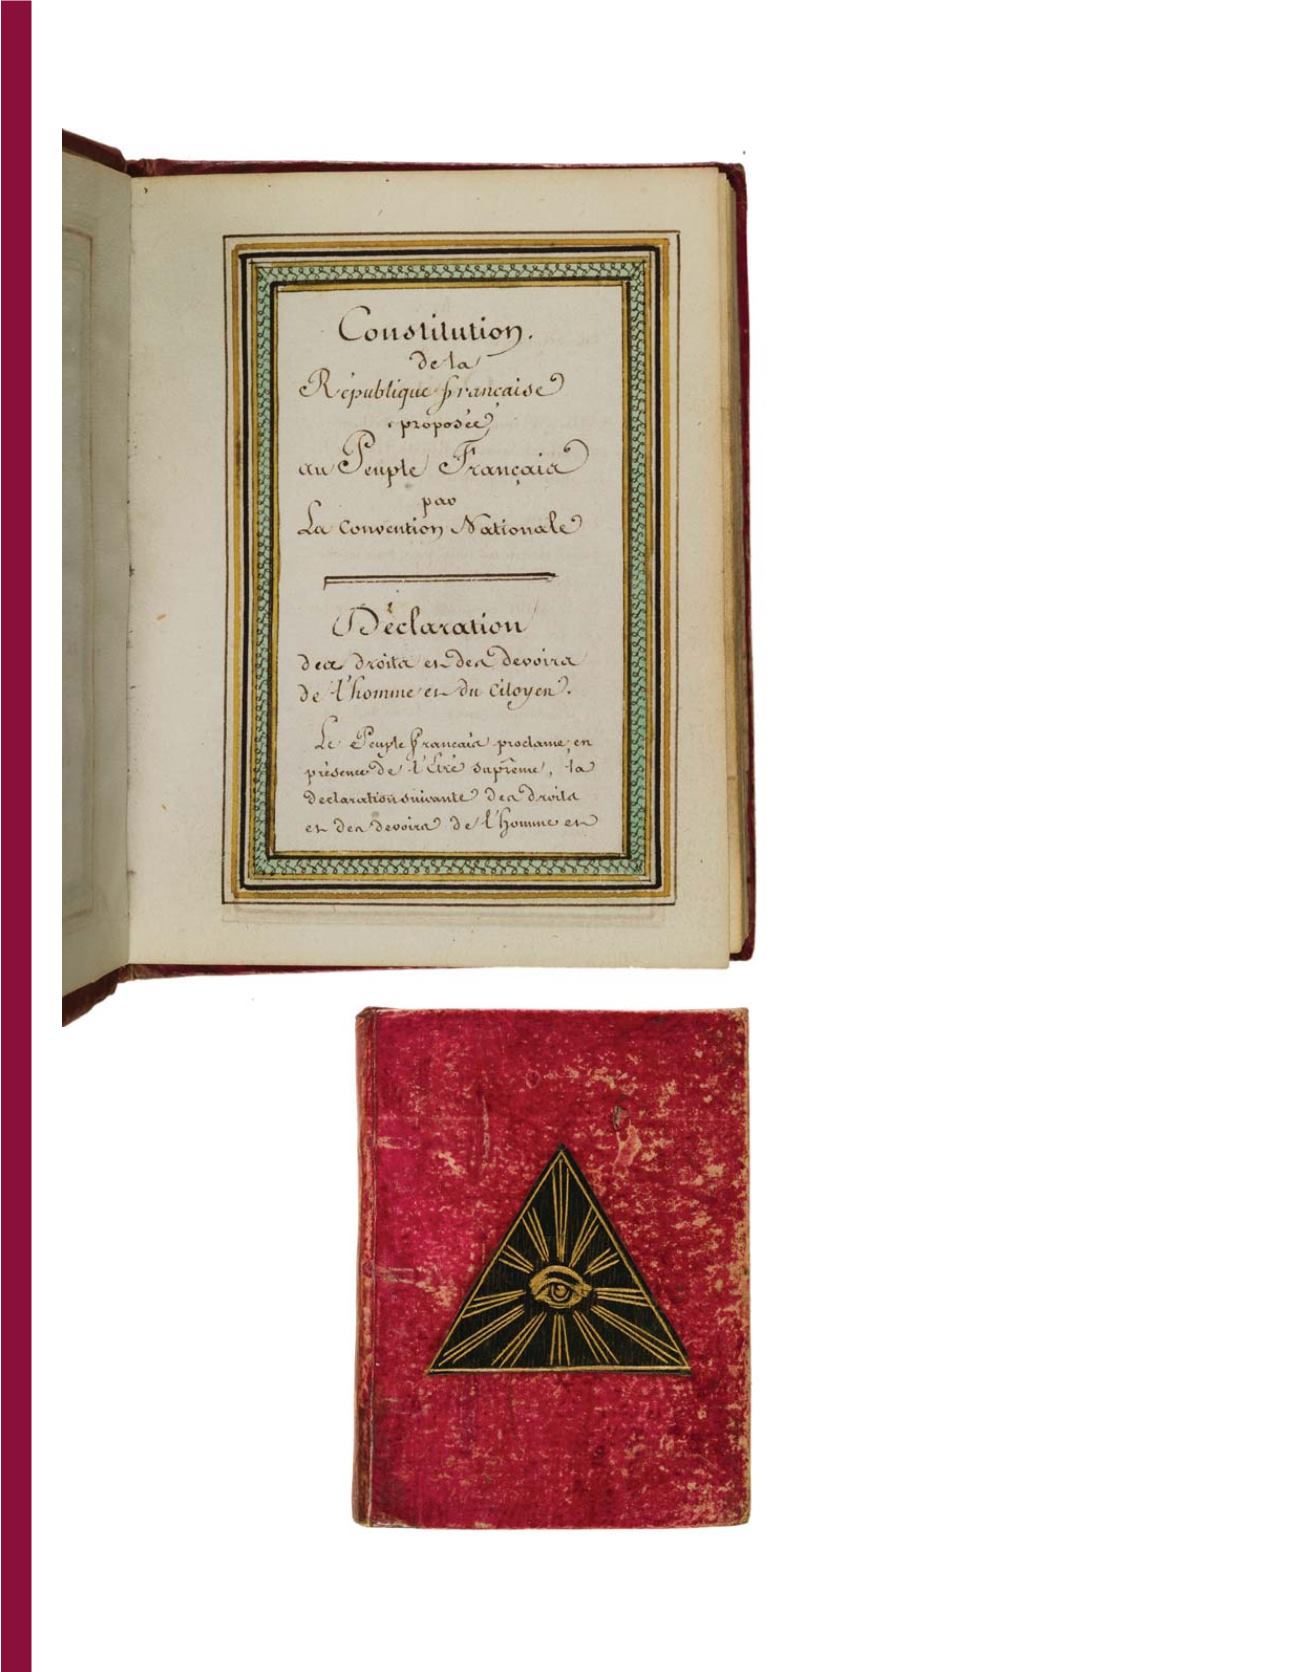 Constitution.
de la
République française
proposée
au Peuple Français
par
La Convention Nationale
Déclaration
des droits et des devoirs
de l'homme et du Citoyen.
Le Peuple français proclame, en
présence de l'Être suprême, la
declaration suivante des droits
et des devoirs de l'homme et